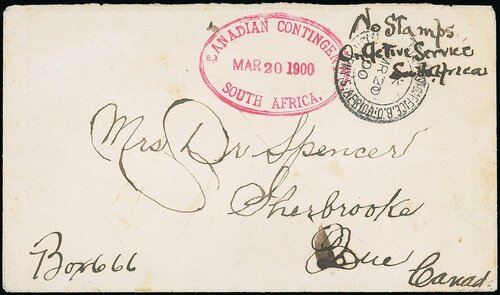 CANADIAN CONTINGENT
MAR 20 1900
SOUTH AFRICA.
No Stamps
On Active Service
South Africa
MR 20
00
Mrs Dr Spencer
Sherbrooke
Que
Box 666
Canada